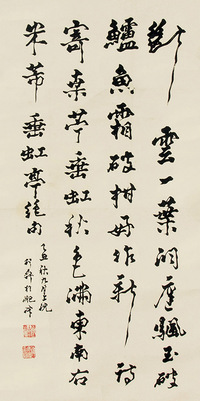 斷雲一葉洞庭颿玉破
鱸魚霜破柑好作新詩
寄桑苧垂虹秋色滿東南右
米芾垂虹亭絕句